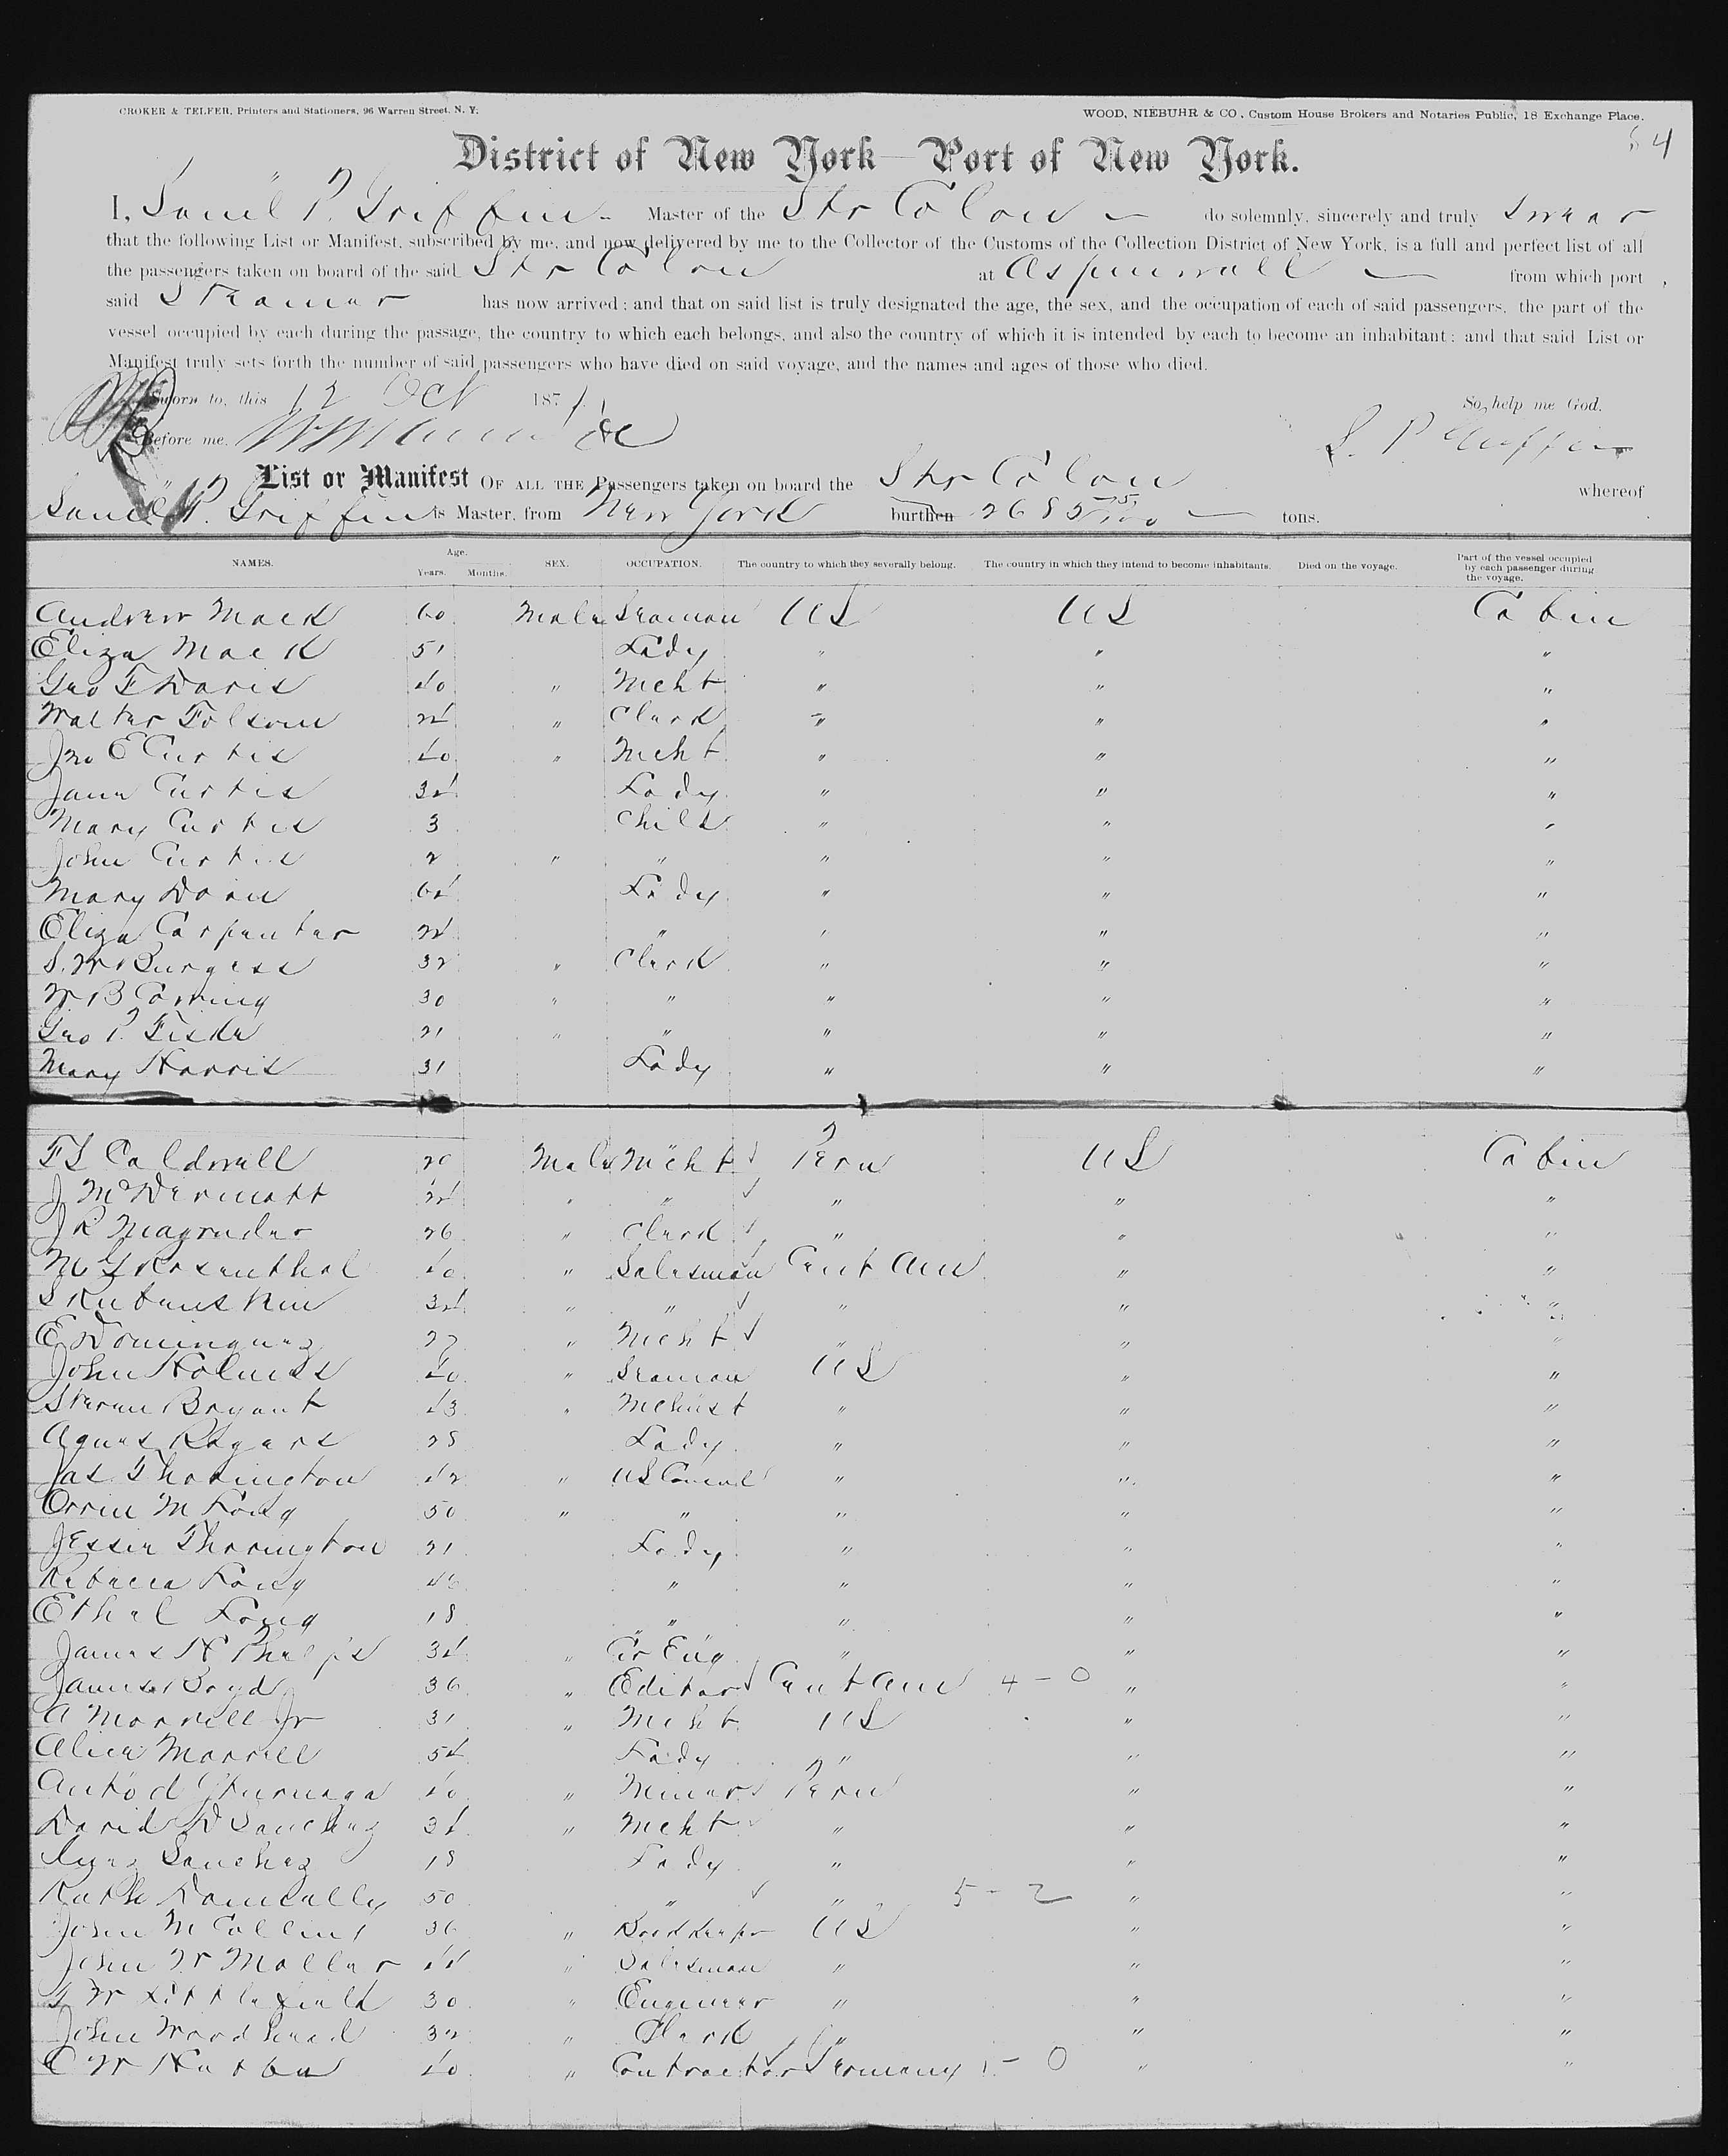 CROKER & TELFER, Printers and Stationers, 96 Warren Street, N. Y.
WOOD, NIEBUHR & CO., Custom House Brokers and Notaries Public, 18 Exchange Place.
4
District of New York—Port of New York.
I, Saml P. Griffin Master of the Str Colon do solemnly, sincerely and truly swear
that the following List or Manifest, subscribed by me, and now delivered by me to the Collector of the Customs of the Collection District of New York, is a full and perfect list of all
the passengers taken on board of the said Str Colon at Aspinwall from which port
said Steamer has now arrived; and that on said list is truly designated the age, the sex, and the occupation of each of said passengers, the part of the
vessel occupied by each during the passage, the country to which each belongs, and also the country of which it is intended by each to become an inhabitant; and that said List or
Manifest truly sets forth the number of said passengers who have died on said voyage, and the names and ages of those who died.
Sworn to, this 12 Oct 187
So help me God.
Before me,
S. P. Griffin
List or Manifest OF ALL THE Passengers taken on board the Str Colon whereof
Saml P. Griffin is Master, from New York burthen 2685 tons.
NAMES. Age. Years. Months. SEX. OCCUPATION. The country to which they severally belong. The country in which they intend to become inhabitants. Died on the voyage. Part of the vessel occupied by each passenger during the voyage.
Andrew Mack 60 Male Seaman US US Cabin
Eliza Mack 51 Lady " " "
Geo F Davis 40 " Mcht " " "
Walter Folsom 24 " Clerk " " "
Jno E Curtis 40 " Mcht " " "
Jane Curtis 34 Lady " " "
Mary Curtis 3 Child " " "
John Curtis 2 " " " " "
Mary Doan 64 Lady " " "
Eliza Carpenter 24 " " " "
S. W Burgess 32 " Clerk " " "
W B Corning 30 " " " " "
Geo P. Fiske 21 " " " " "
Mary Harris 31 Lady " " "
F L Caldwell 20 Male Mcht Peru US Cabin
J McDermott 24 " " " " "
J R Magruder 26 " Clerk " " "
M G Rosenthal 40 " Salesman Cent Am " "
S Rubenstein 34 " " " " "
E Dominguez 27 " Mcht " " "
John Holmes 40 " Seaman US " "
Steven Bryant 43 " Mchnst " " "
Agnes Rogers 28 Lady " " "
Jas Thorington 42 " US Consul " " "
Orrin M Long 50 " " " " "
Jessie Thorington 21 Lady " " "
Rebecca Long 46 " " " "
Ethel Long 18 " " " "
James H Phelps 34 " Cv Eng " " "
James Boyd 36 " Editor Cent Am 4 - 0 " "
A Morrell Jr 31 " Mcht US " "
Alice Morrell 54 Lady " " "
Anto d Yturnaga 40 " Miner Peru " "
David D Sanchez 34 " Mcht " " "
Sanchez 18 Lady " " "
Donnelly 50 " " 5 - 2 " "
John M Collins 36 " Bookkeeper US " "
John W Moller 44 " Salesman " " "
W Littlefield 30 " Engineer " " "
John Woodhead 32 " Clerk " " "
C W 40 " Contractor Germany 1 - 0 " "